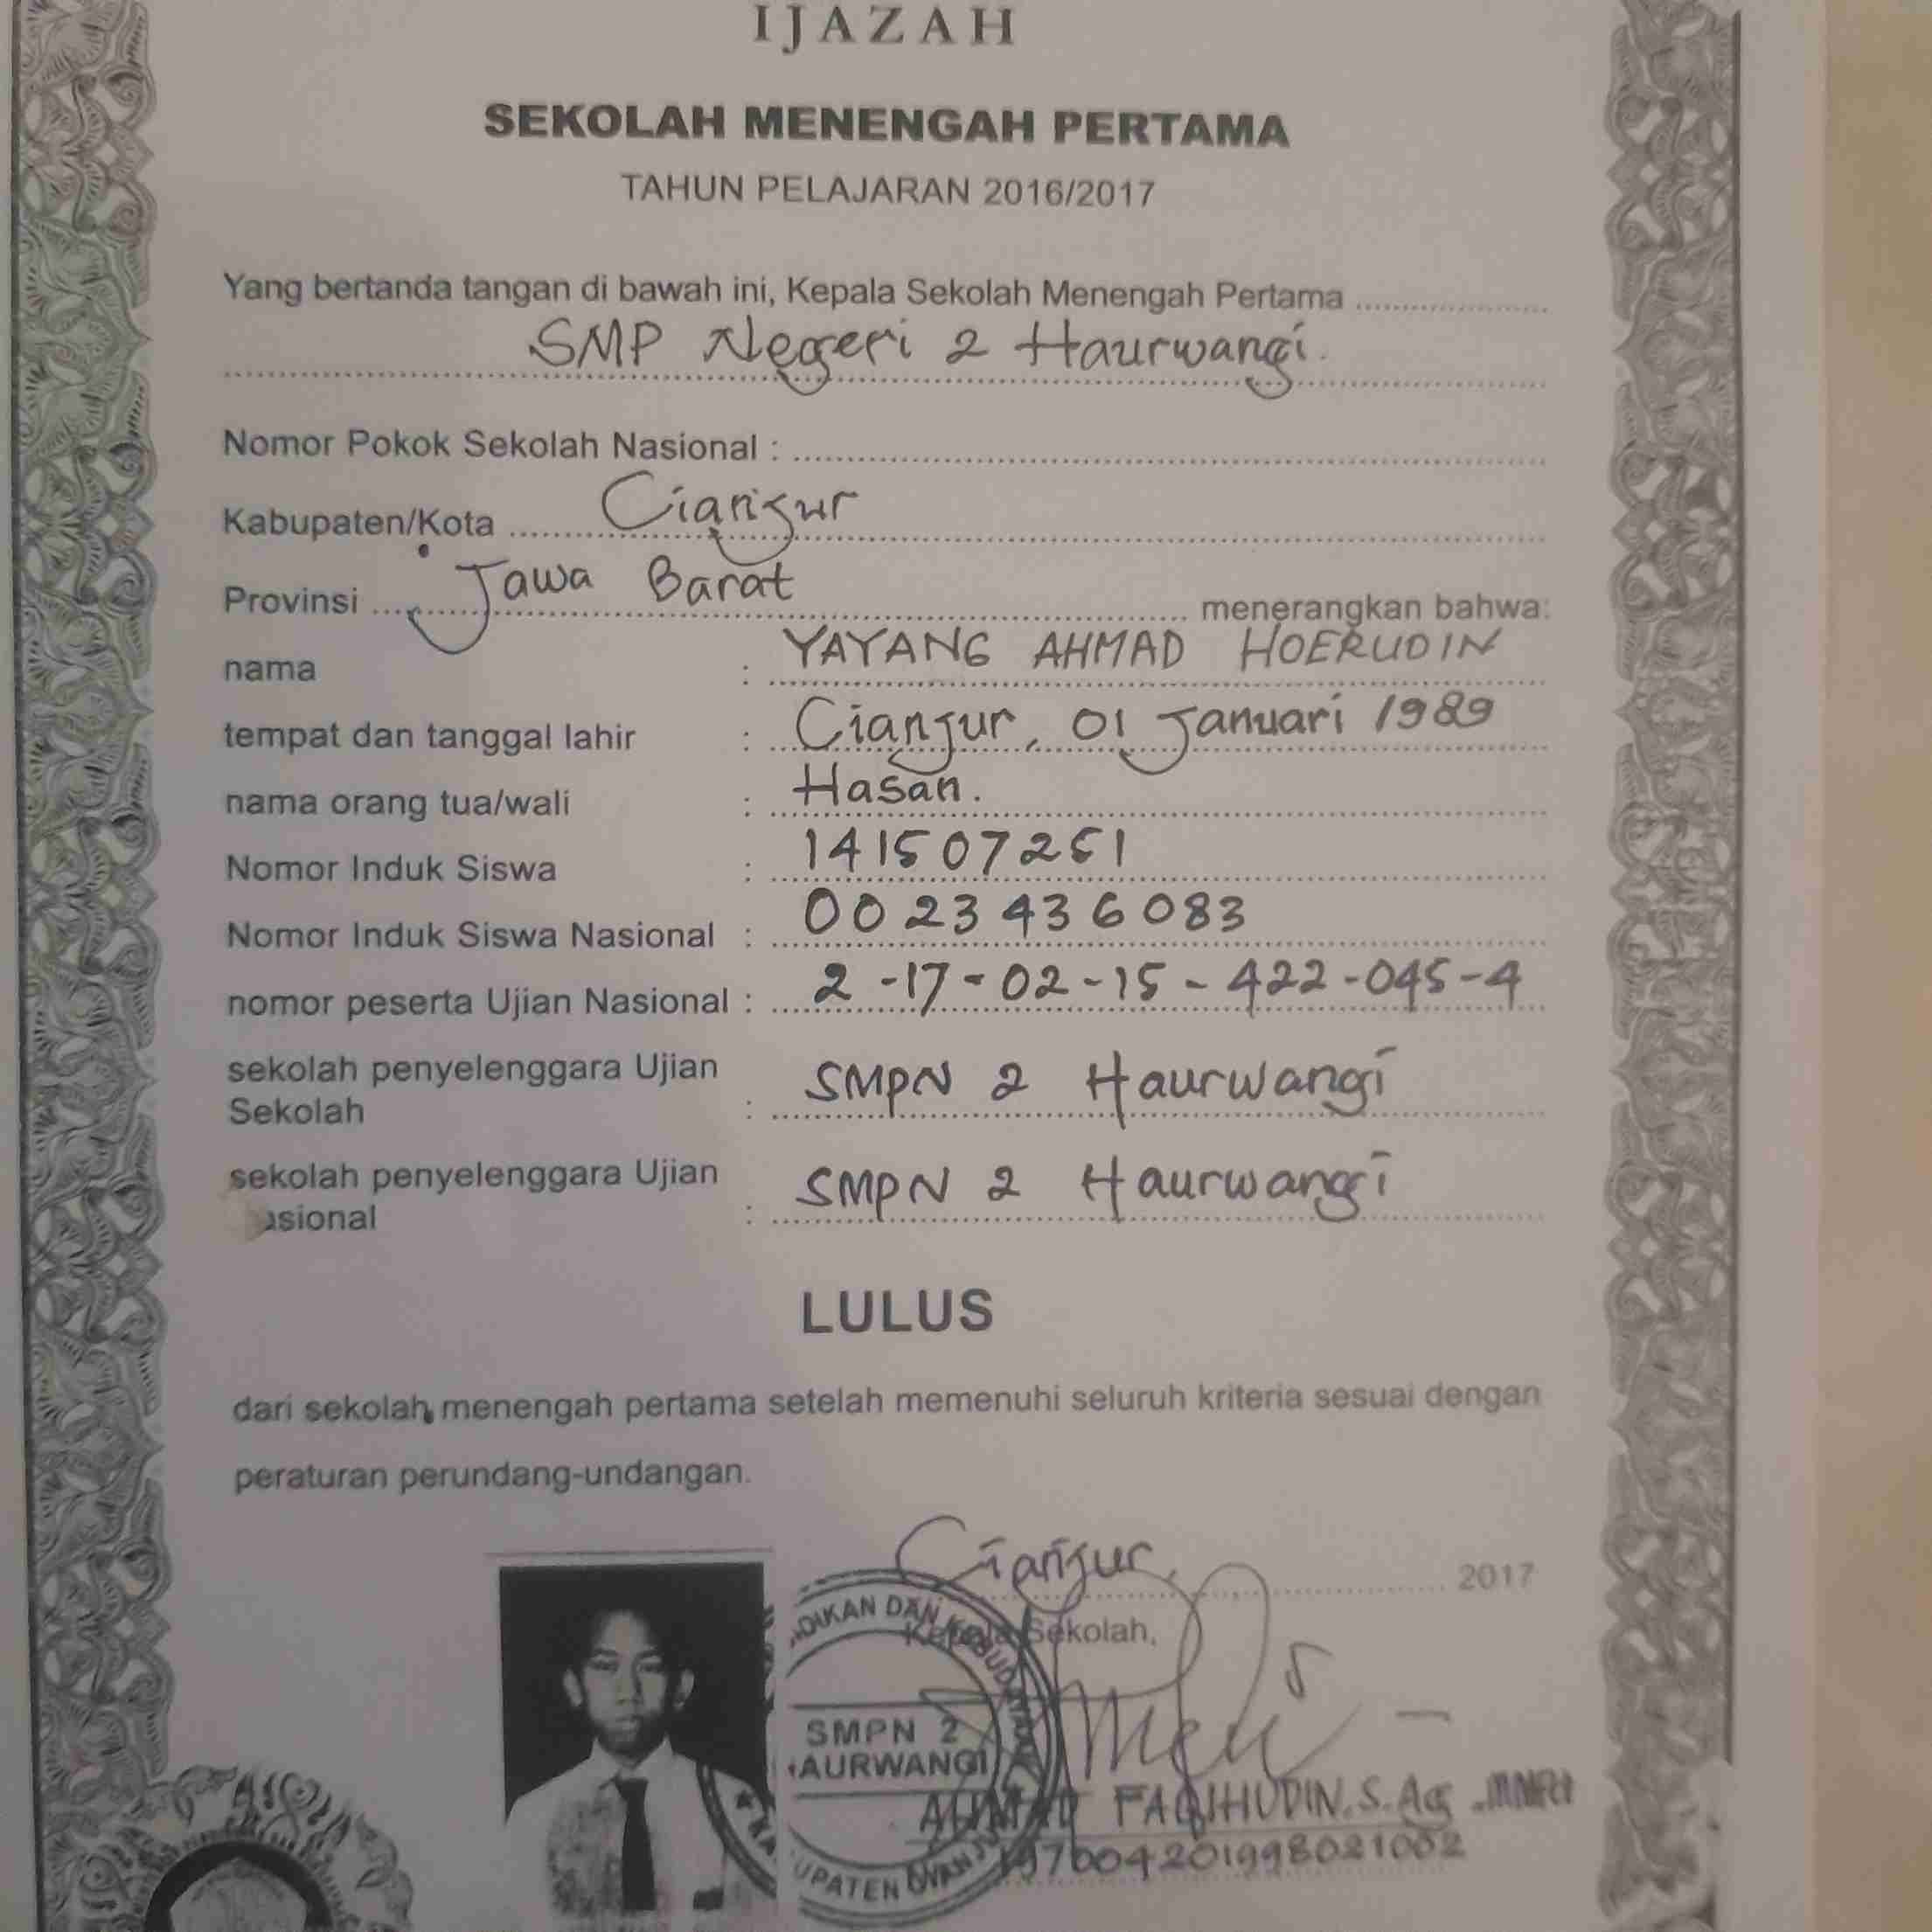 IJAZAH
SEKOLAH MENENGAH PERTAMA
TAHUN PELAJARAN 2016/2017
Yang bertanda tangan di bawah ini, Kepala Sekolah Menengah Pertama
SMP Negeri 2 Haurwangi.
Nomor Pokok Sekolah Nasional :
Kabupaten/Kota Cianjur
Provinsi Jawa Barat menerangkan bahwa:
nama : YAYANG AHMAD HOERUDIN
tempat dan tanggal lahir : Cianjur, 01 Januari 1989
nama orang tua/wali : Hasan.
Nomor Induk Siswa : 141507251
Nomor Induk Siswa Nasional : 0023436083
nomor peserta Ujian Nasional : 2-17-02-15-422-045-4
sekolah penyelenggara Ujian
Sekolah : SMPN 2 Haurwangi
sekolah penyelenggara Ujian
asional : SMPN 2 Haurwangi
LULUS
dari sekolah menengah pertama setelah memenuhi seluruh kriteria sesuai dengan
peraturan perundang-undangan.
Cianjur, 2017
Kepala Sekolah,
DIKAN DAN KEBUDAYAAN
SMPN 2
AURWANGI
FAQIHUDIN.S.Ag
197004201998021002